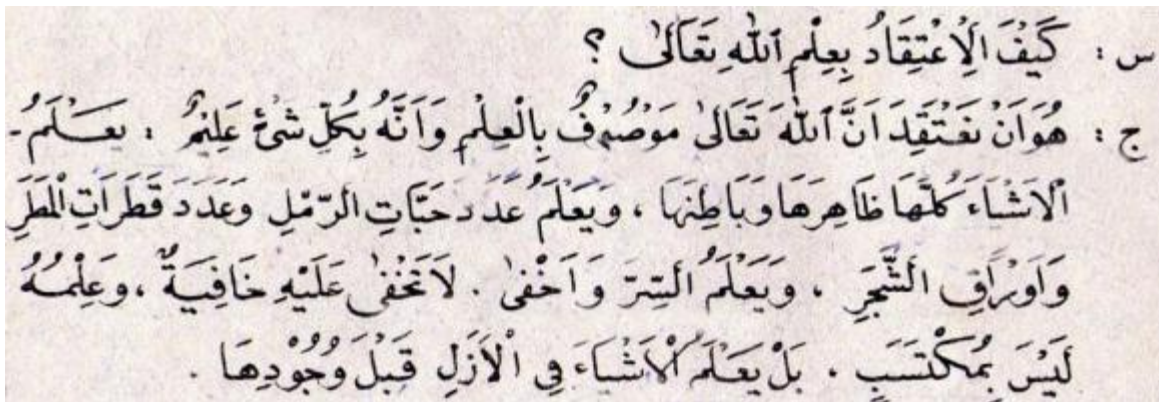 س : كَيْفَ الْاِعْتِقَادُ بِعِلْمِ اللّٰهِ تَعَالَىٰ ؟
ج : هُوَ اَنْ نَعْتَقِدَ اَنَّ اللّٰهَ تَعَالَىٰ مَوْصُوْفٌ بِالْعِلْمِ وَاَنَّهُ بِكُلِّ شَیْءٍ عَلِيْمٌ ، يَعْلَمُ -
الْاَشْيَاءَ كُلَّهَا ظَاهِرَهَا وَبَاطِنَهَا ، وَيَعْلَمُ عَدَدَ حَبَّاتِ الرَّمْلِ وَعَدَدَ قَطَرَاتِ الْمَطَرِ
وَاَوْرَاقِ الشَّجَرِ ، وَيَعْلَمُ السِّرَّ وَاَخْفىٰ . لَاتَخْفىٰ عَلَيْهِ خَافِيَةٌ ، وَعِلْمُهُ
لَيْسَ بِمُكْتَسَبٍ . بَلْ يَعْلَمُ الْاَشْيَاءَ فِي الْاَزَلِ قَبْلَ وُجُوْدِهَا .